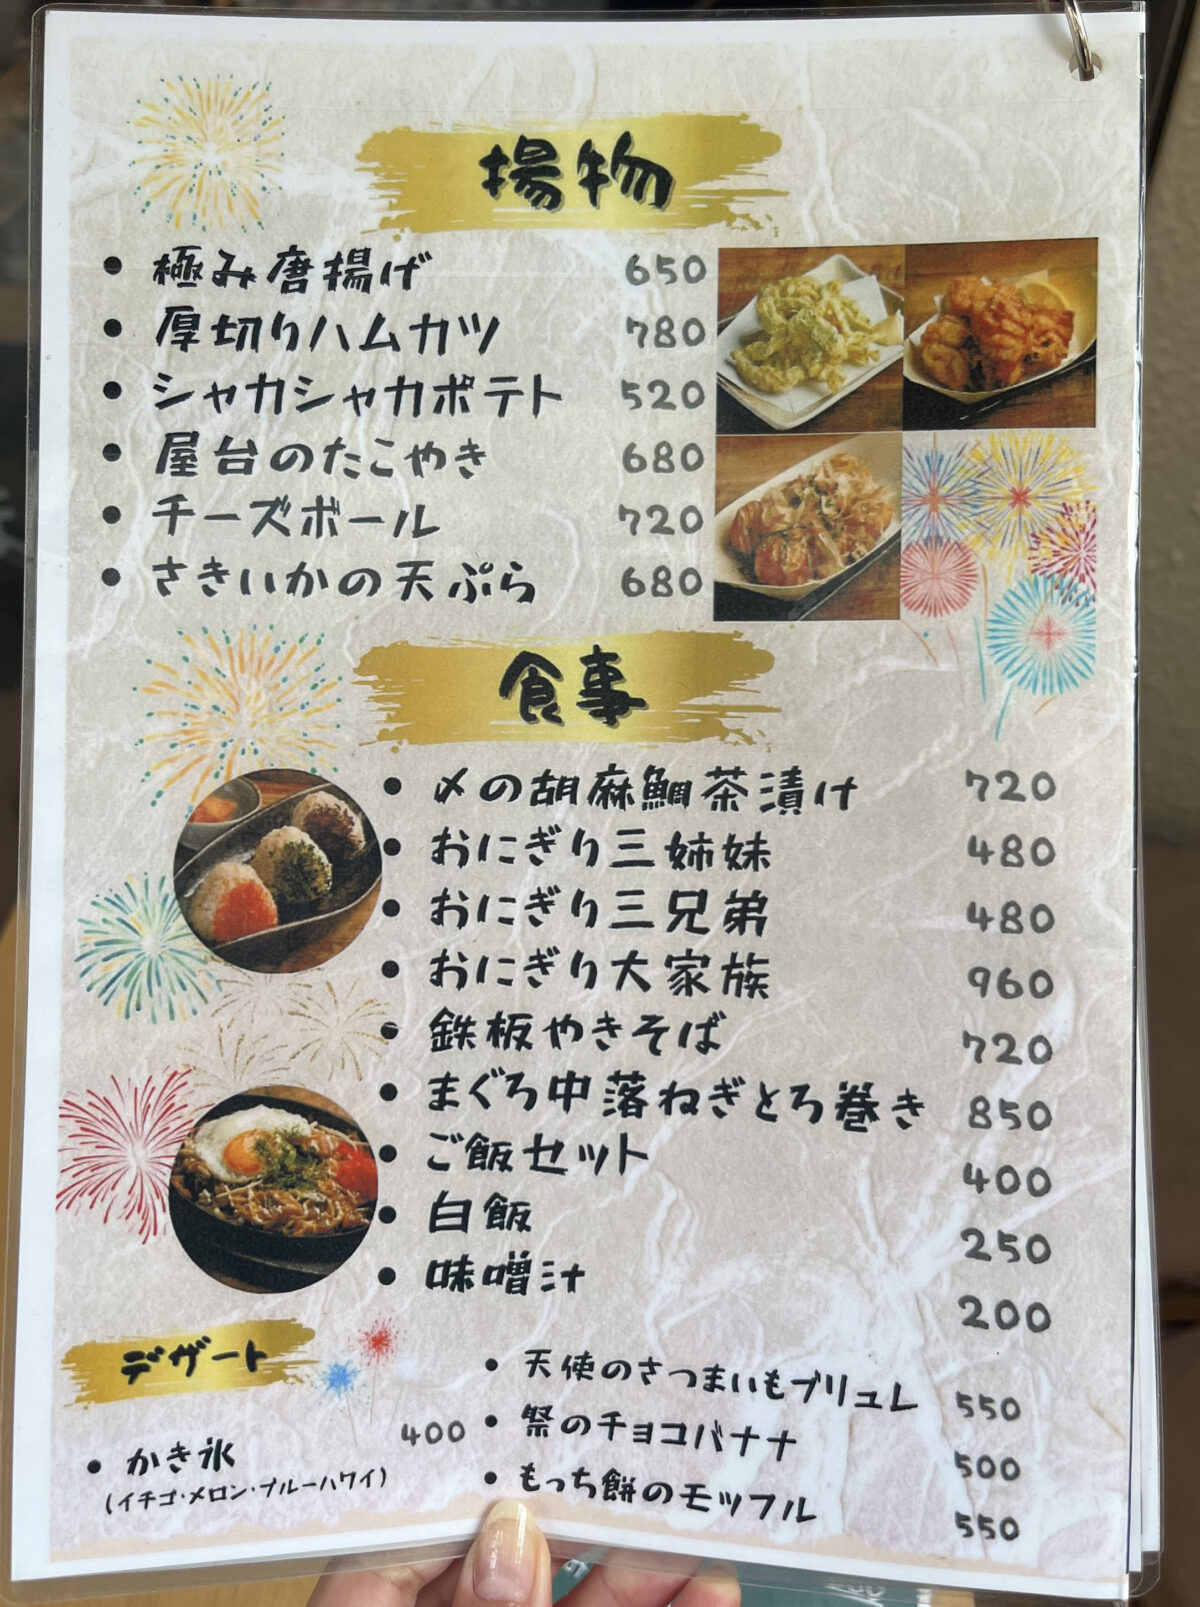 揚物
極み唐揚げ 650
厚切りハムカツ 780
シャカシャカポテト 520
屋台のたこやき 680
チーズボール 720
さきいかの天ぷら 680
食事
〆の胡麻鯛茶漬け 720
おにぎり三姉妹 480
おにぎり三兄弟 480
おにぎり大家族 960
鉄板やきそば 720
まぐろ中落ねぎとろ巻き 850
ご飯セット 400
白飯 250
味噌汁 200
デザート
かき氷 400
(イチゴ・メロン・ブルーハワイ)
天使のさつまいもブリュレ 550
祭のチョコバナナ 500
もっち餅のモッフル 550